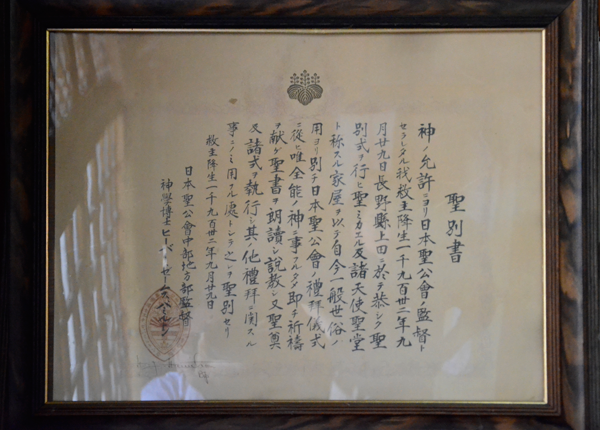 聖別書
神ノ允許ニヨリ日本聖公會ノ監督ト
セラレタル我救主降生一千九百卅二年九
月廿九日長野縣上田ニ於テ恭シク聖
別式ヲ行ヒ聖ミカエル及諸天使聖堂
ト称スル家屋ヲ以テ自今一般世俗ノ
用ヨリ別チ日本聖公會ノ禮拜儀式
ニ從ヒ唯全能ノ神ニ事フル為即チ祈禱
ヲ献ゲ聖書ヲ朗讀シ説教シ又聖奠
及諸式ヲ執行シ其ノ他禮拜ニ関スル
事ニノミ用フル處トシテ之ヲ聖別セリ
救主降生一千九百卅二年九月廿九日
日本聖公會中部地方部監督
神學博士ヒーバ ゼームス ハミルトン